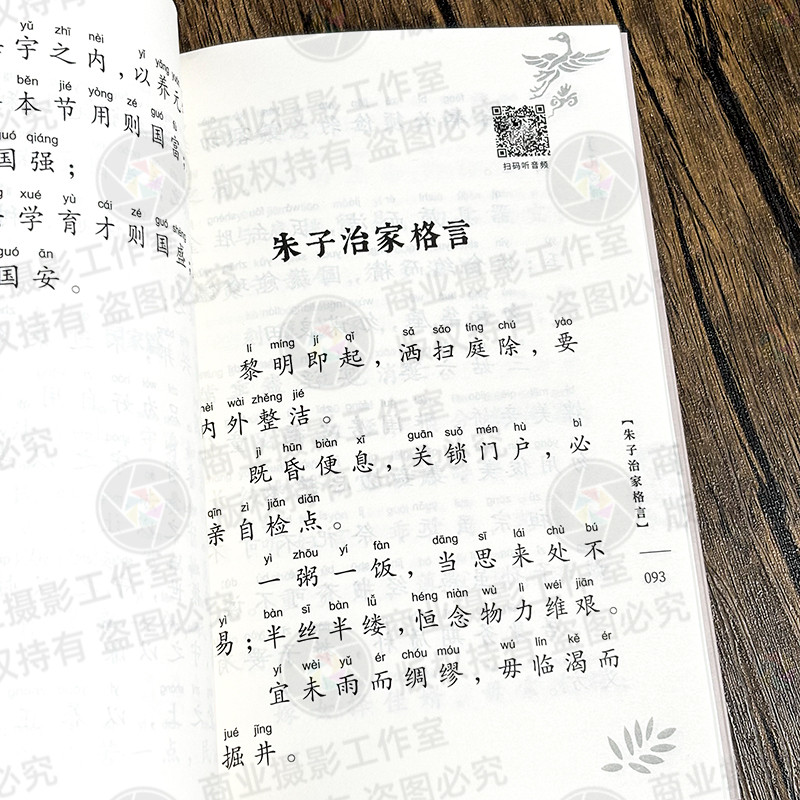 yǔ zhī nèi yǐ yǎng yuán
宇之内，以养元
běn jié yòng zé guó fù
本节用则国富，
guó qiáng
国强；
xué yù cái zé guó shèng
学育才则国盛，
guó ān
国安。
扫码听音频
朱子治家格言
lí míng jí qǐ sǎ sǎo tíng chú yào
黎明即起，洒扫庭除，要
nèi wài zhěng jié
内外整洁。
jì hūn biàn xī guān suǒ mén hù bì
既昏便息，关锁门户，必
qīn zì jiǎn diǎn
亲自检点。
yì zhōu yí fàn dāng sī lái chù bú
一粥一饭，当思来处不
yì bàn sī bàn lǚ héng niàn wù lì wéi jiān
易；半丝半缕，恒念物力维艰。
yí wèi yǔ ér chóu móu wú lín kě ér
宜未雨而绸缪，毋临渴而
jué jǐng
掘井。
【朱子治家格言】
093
商业摄影工作室
版权持有 盗图必究